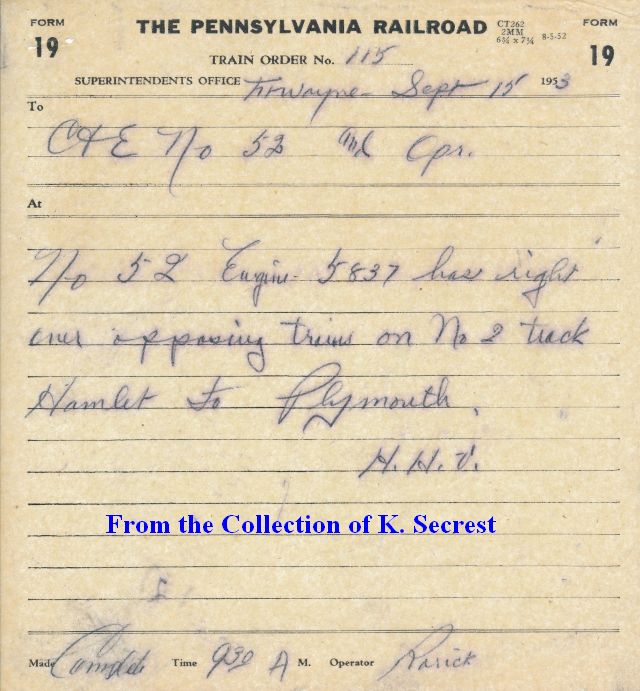 FORM 19 THE PENNSYLVANIA RAILROAD CT262 2MM 6¾ x 7¼ 8-5-52 FORM 19
TRAIN ORDER No. 115
SUPERINTENDENTS OFFICE Ft Wayne - Sept 15 1953
To
C&E No 52 and Opr.
At
No 52 Engine - 5837 has right
over opposing trains on No 2 track
Hamlet to Plymouth.
H. H. V.
From the Collection of K. Secrest
Made Complete Time 930 A M. Operator Rarick